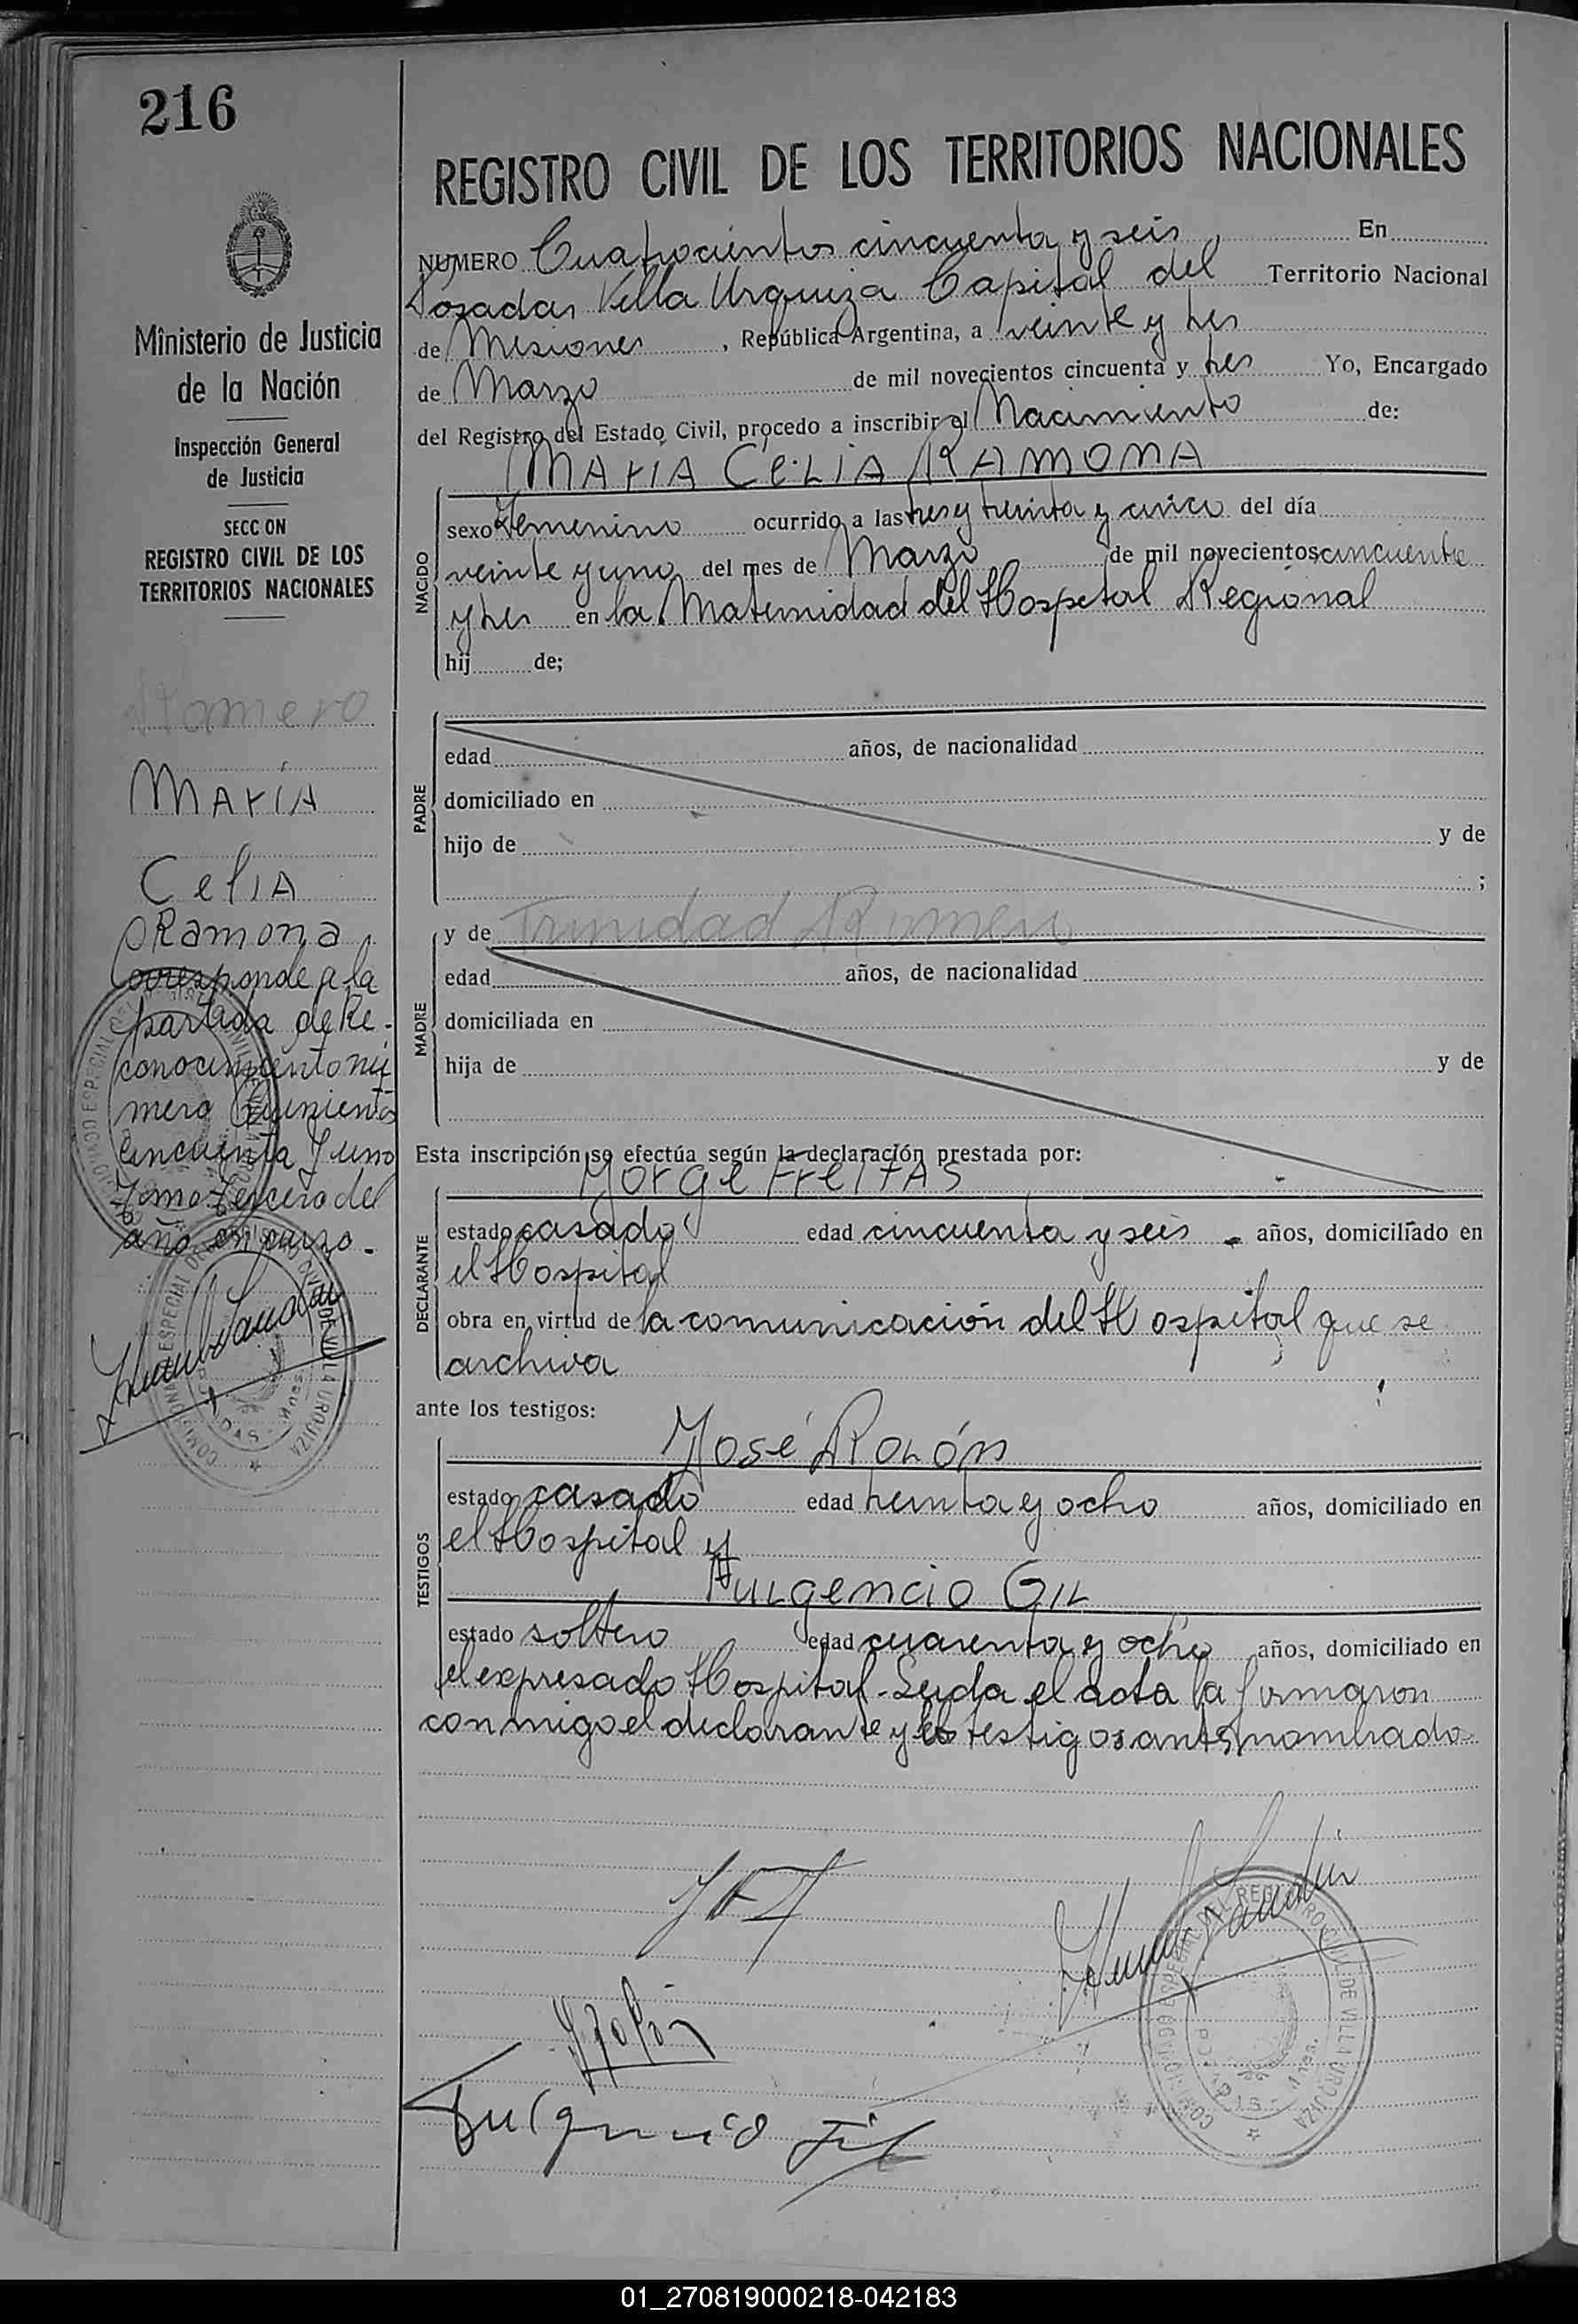 216
Ministerio de Justicia
de la Nación
Inspección General
de Justicia
SECC ON
REGISTRO CIVIL DE LOS
TERRITORIOS NACIONALES
Romero
María
Celia
Ramona
Corresponde a la
partida de Re-
conocimiento nú
mero Quinientos
Cincuenta y uno
Tomo Tercero del
año en curso.
REGISTRO CIVIL DE LOS TERRITORIOS NACIONALES
NUMERO Cuatrocientos cincuenta y seis, En
Posadas Villa Urquiza Capital del Territorio Nacional
de Misiones, República Argentina, a veinte y tres
de Marzo de mil novecientos cincuenta y tres Yo, Encargado
del Registro del Estado Civil, procedo a inscribir el Nacimiento de:
María Celia Ramona
NACIDO
sexo Femenino ocurrido a las tres y treinta y cinco del día
veinte y uno del mes de Marzo de mil novecientos cincuenta
y tres en la Maternidad del Hospital Regional
hij de;
PADRE
edad años, de nacionalidad
domiciliado en
hijo de y de
;
MADRE
y de Trinidad Romero
edad años, de nacionalidad
domiciliada en
hija de y de
Esta inscripción se efectúa según la declaración prestada por:
Jorge Freitas
DECLARANTE
estado casado edad cincuenta y seis - años, domiciliado en
el Hospital
obra en virtud de la comunicación del Hospital que se
archiva
ante los testigos:
José Rolón
TESTIGOS
estado casado edad treinta y ocho años, domiciliado en
el Hospital y
Fulgencio Gil
estado soltero edad cuarenta y ocho años, domiciliado en
el expresado Hospital - Leida el acta la firmaron
conmigo el declarante y los testigos antes nombrado
Fulgencio Gil
COMISIONADO ESPECIAL DEL REGISTRO CIVIL DE VILLA URQUIZA
01_270819000218-042183